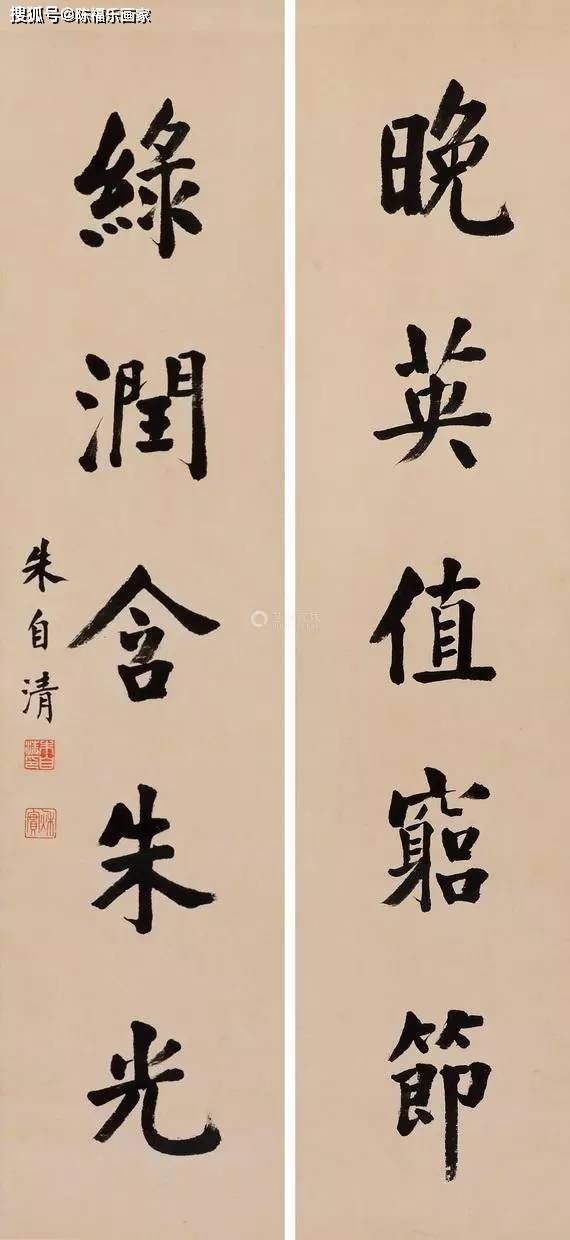 搜狐号@陈福乐画家
晚英值窮節
綠潤含朱光
朱自清